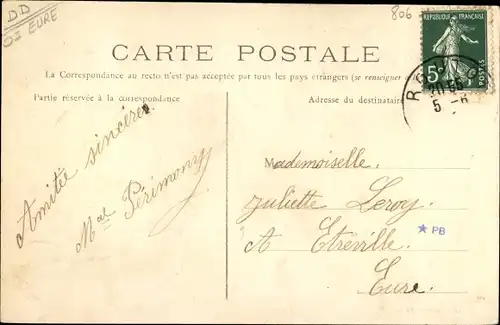 DD
EURE
806
CARTE POSTALE
La Correspondance au recto n'est pas acceptée par tous les pays étrangers (se renseigner
Partie réservée à la correspondance
Adresse du destinataire
REPUBLIQUE FRANÇAISE
5c
POSTES
Amitée sincères
Mal Périmony
Mademoiselle
Juliette Leroy
A Etreville
Eure
★ PB